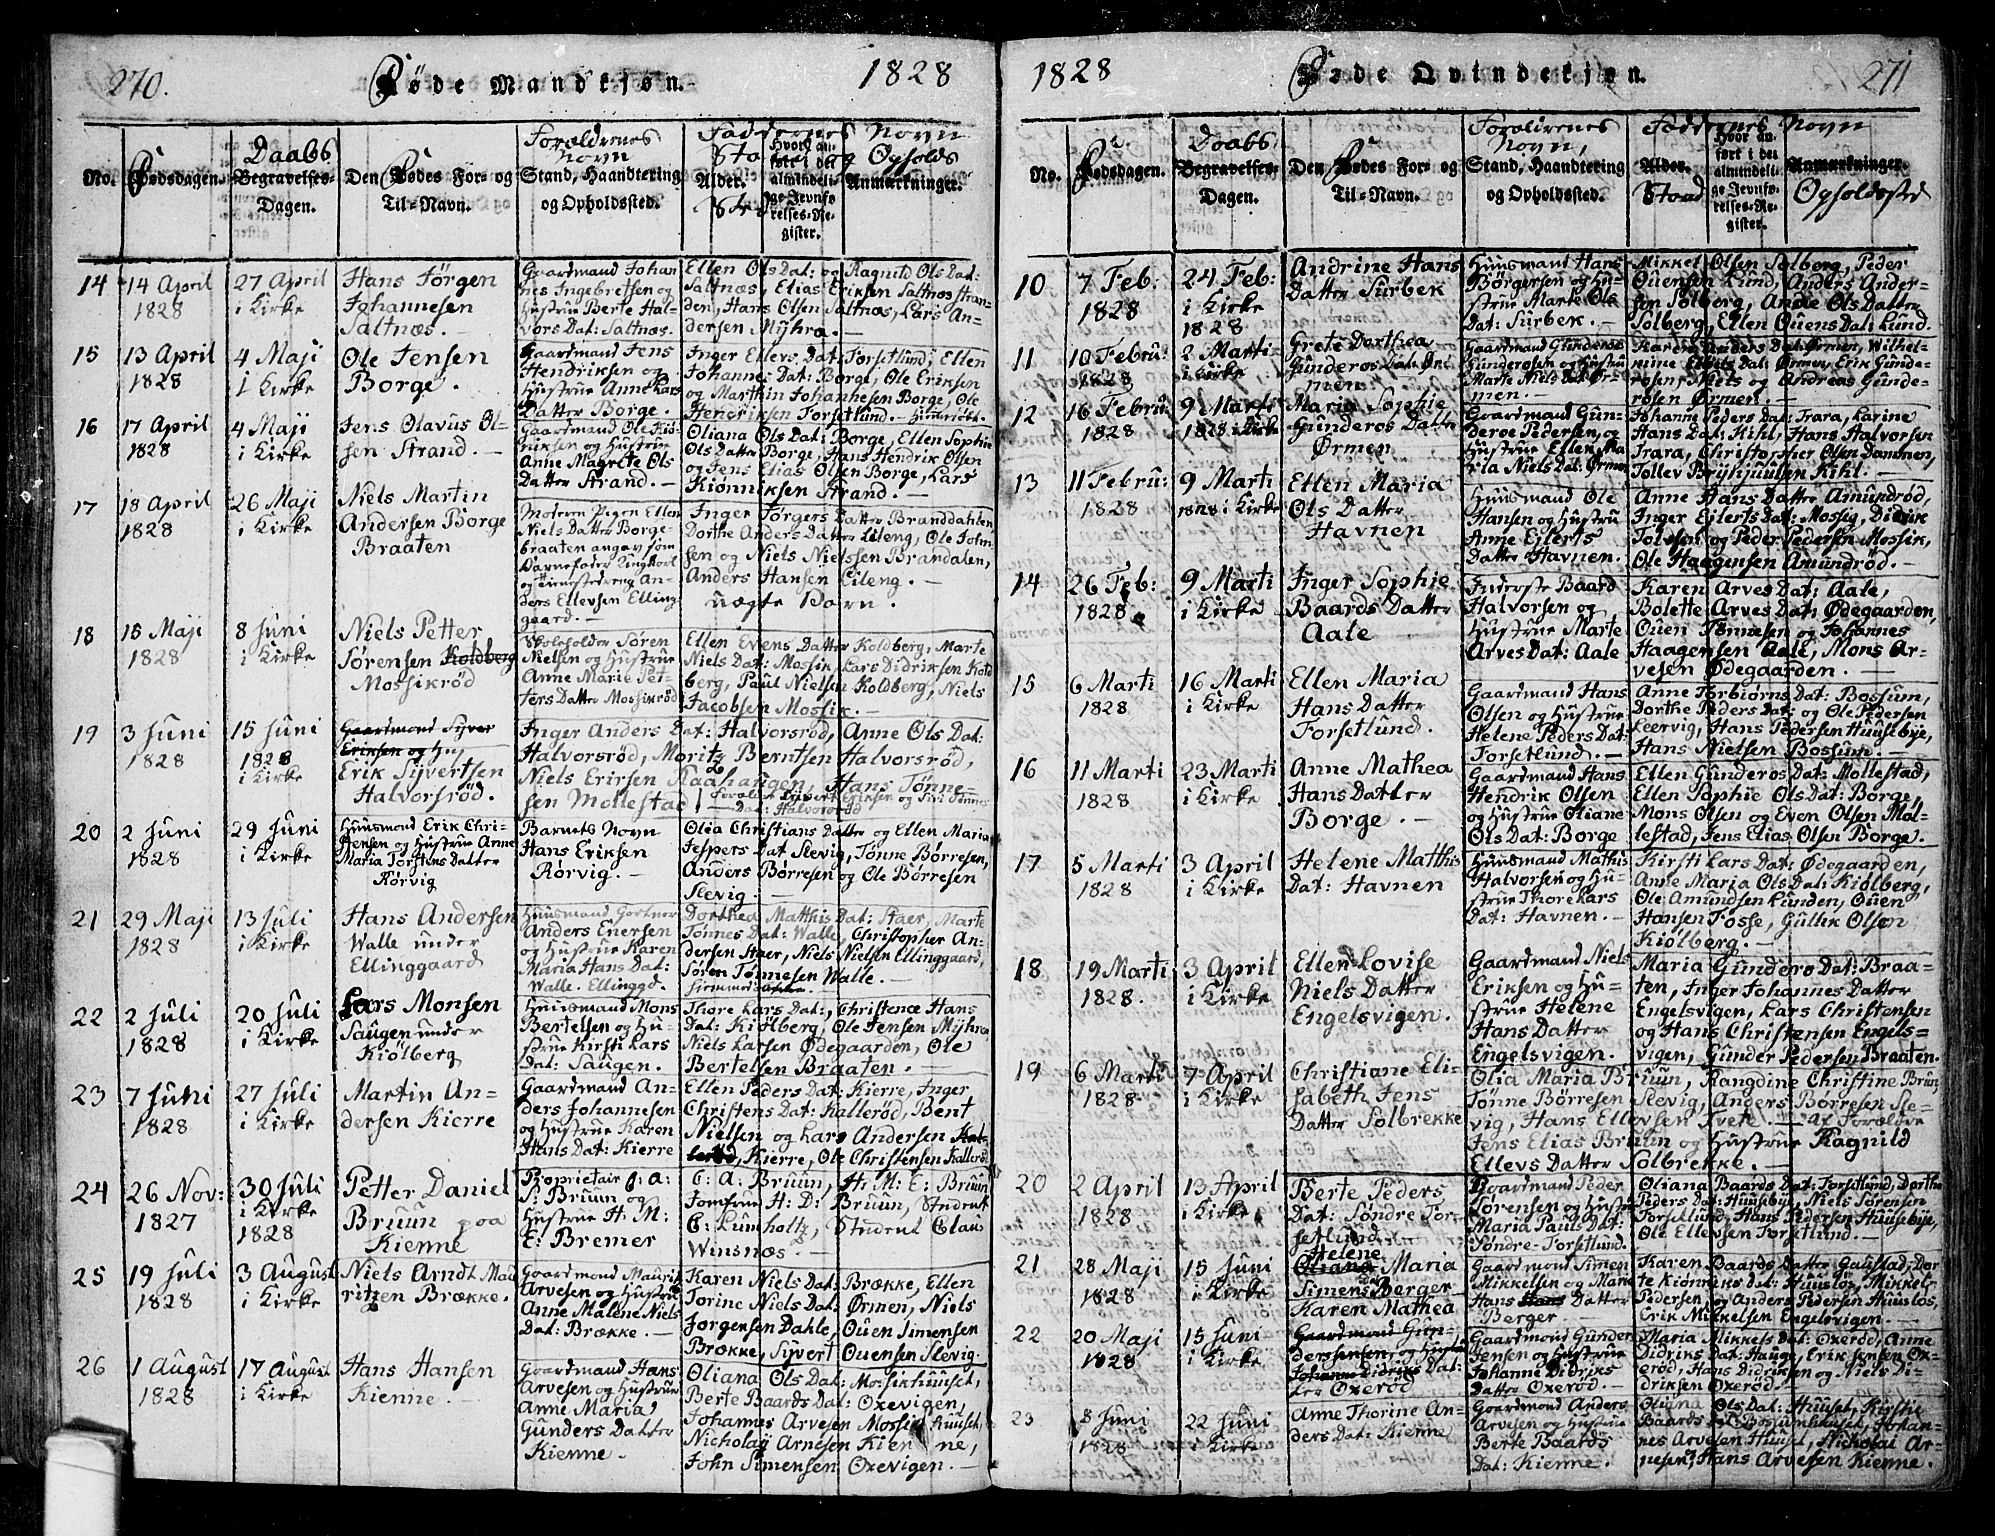 270.
Føde Mandkjøn.
1828
No.
Fødsdagen.
Daabs
Begravelses-
Dagen.
Den Fødes For- og
Til-Navn.
Forældrenes
Navn
Stand, Haandtering
og Opholdssted.
Faddernes Navn
Alder.
Hvor an-
ført i det
almindeli-
ge Jevnfø-
relses-Re-
gister.
Opholds
Anmærkninger.
14
14 April
1828
27 April
i Kirke
Hans Jörgen
Johannesen
Saltnæs.
Gaardmand Johan
nes Ingebretsen og
Hustrue Berte Hal-
vors Dat: Saltnæs.
Ellen Ols Dat: og Ragnild Ols Dat:
Saltnæs, Elias Eriksen Saltnæs Stran-
den, Hans Olsen Saltnæs, Lars An-
dersen Myhra.
15
13 April
1828
4 Maji
i Kirke
Ole Jensen
Borge.
Gaardmand Jens
Hendriksen og
Hustrue Anne Lars
Datter Borge.
Inger Ellevs Dat: Forsetlund, Ellen
Johannes Dat: Borge, Ole Eriksen
og Marthin Johannesen Borge, Ole
Henriksen Forsetlund.
16
17 April
1828
4 Maji
i Kirke
Jens Olavus Ol-
sen Strand.
Gaardmand Ole Kiø-
niksen og Hustrue
Anne Magrete Ols
Datter Strand.
Oliana Ols Dat: Borge, Ellen Sophie
Ols Datter Borge, Hans Hendrik Olsen
og Jens Elias Olsen Borge, Lars
Kiönniksen Strand.
17
18 April
1828
26 Maji
i Kirke
Niels Martin
Andersen Borge
Braaten
Moteren Pigen Ellen
Niels Datter Borge-
braaten angav som
Barnefader Ungkarl
og Tienestedreng An-
ders Ellevsen Elling-
gaard.
Inger Jörgers Datter Branddahlen
Dorthe Anders Datter Lileng, Ole John-
sen og Niels Nielssen Brandalen,
Anders Hansen Lileng.
uægte Barn.
18
15 Maji
1828
8 Juni
i Kirke
Niels Petter
Sørensen Koldberg
Mossikröd
Skoleholder Sören
Nielsen og Hustrue
Anne Marie Pet-
ters Datter Mossikröd
Ellen Evens Datter Koldberg, Marte
Niels Dat: Mossik, Lars Didriksen Kold
berg, Paul Nielsen Koldberg, Niels
Jacobsen Mossik.
19
3 Juni
1828
15 Juni
1828
i Kirke
Gaardmand Syver
Eriksen og Hus
Erik Syvertsen
Halvorsröd.
Inger Anders Dat: Halvorsröd, Anne Ols Dat:
Halvorsröd, Moritz Berntsen Halvorsröd,
Niels Erirsen Kaahaugen, Hans Tönne-
sen Mollestad
Forældre Syvert Eriksen og Siri Tønnes
Dat: Halvorsröd
20
2 Juni
1828
29 Juni
i Kirke
Huusmand Erik Chri-
stensen og Hustrue Anne
Maria Torstens Datter
Rörvig
Barnets Navn
Hans Eriksen
Rörvig.
Olea Christians Datter og Ellen Maria
Jespers Dat Slevig, Tönne Börresen,
Anders Börresen og Ole Börresen
Slevig
21
29 Maji
1828
13 Juli
i Kirke
Hans Andersen
Walle under
Ellinggaard
Huusmand Gartner
Anders Enersen
og Hustrue Karen
Maria Hans Dat:
Walle. Ellinggd.
Dorthea Matthis Dat: Staer, Marte
Tönnes Dat: Walle, Christopher An-
dersen Staer, Niels Nielsen Ellinggaard,
Sören Tønnesen Walle.
22
2 Juli
1828
20 Juli
i Kirke
Lars Monsen
Saugen under
Kiölberg
Huusmand Mons
Bertelsen og Hu-
strue Kirsti Lars
Dat: Saugen.
Thore Lars Dat:, Christence Hans
Dat: Kiölberg, Ole Jensen Myhra,
Niels Larsen Ødegaarden, Ole
Bertelsen Braaten.
23
7 Juni
1828
27 Juli
i Kirke
Martin An-
dersen Kierre
Gaardmand An-
ders Johannesen
og Hustrue Karen
Hans Dat: Kierre
Ellen Peders Dat: Kierre, Inger
Christens Dat: Kalleröd, Bent
Nielsen og Lars Andersen Kal-
leröd, Kierre, Ole Christensen Kalleröd
24
26 Nov:
1827
30 Juli
i Kirke
1828
Petter Daniel
Bruun paa
Kienne
Proprietair J: A:
S: Bruun og
Hustrue H: M:
E: Bremer
C: A: Bruun, H: M: E: Bruun,
Jomfrue H: D: Bruun, Student
C: Lumholtz, Student Claus
Winsnæs.
25
19 Juli
1828
3 August
i Kirke
Niels Arndt Mau
ritzen Brække.
Gaardmand Maurits
Arvesen og Hustrue
Anne Malene Niels
Dat: Brække.
Karen Niels Dat: Brække, Ellen
Torine Niels Dat: Ørmen, Niels
Jörgensen Dahle, Ouen Simensen
Brække, Syvert Ouensen Slevig.
26
1 August
1828
17 August
i Kirke
Hans Hansen
Kienne.
Gaardmand Hans
Arvesen og Hustrue
Anne Maria
Gunders Datter
Kienne.
Oliana Ols Dat: Mossikhuuset,
Berte Baards Dat: Oxevigen,
Johannes Arvesen Mossik huuset,
Nicholay Arnesen Kienne,
John Simensen Oxevigen.
1828
Føde Qvindekjøn.
271
No.
Fødsdagen.
Daabs
Begravelses-
Dagen.
Den Fødes For- og
Til-Navn.
Forældrenes
Navn,
Stand, Haandtering
og Opholdssted.
Faddernes Navn
Alder.
Stand
Hvor an-
ført i det
almindeli-
ge Jevnfø-
relses-Re-
gister.
Anmærkninger.
Opholdssted
10
7 Feb:
1828
24 Feb:
i Kirke
1828
Andrine Hans
Datter Surbek
Huusmand Hans
Börgersen og Hu-
strue Marte Ols
Dat: Surbek.
Mikkel Olsen Solberg, Peder
Ouensen Lund, Anders Ander-
sen Solberg, Anne Ols Datter
Solberg, Ellen Ouens Dat: Lund.
11
10 Febru:
1828
2 Marti
i Kirke
Grete Dorthea
Gunderos Dat: Ør-
men
Gaardmand Gunderos
Gunderosen og Hustrue
Marte Niels Dat Ør-
men.
Karen Anders Dat: Ørmen, Wilhel-
mine Ellefs Dat: Ørmen, Erik Gunde-
rosen, Niels og Andreas Gunde-
rosen Ørmen.
12
16 Febru:
1828
9 Marti
1828 i Kirke
Maria Sophie
Gunderos Datter
Ørmen
Gaardmand Gun-
deroe Pedersen, og
Hustrue Ellen Ma-
ria Niels Dat: Ørmen
Johanne Peders Dat: Trara, Karine
Hans Dat: Kihl, Hans Halvorsen
Trara, Christopher Olsen Dammen,
Tollev Brynjuulsen Kihl.
13
11 Febru:
1828
9 Marti
1828 i Kirke
Ellen Maria
Ols Datter
Havnen
Huusmand Ole
Hansen og Hustrue
Anne Ejlerts
Datter Havnen.
Anne Hans Datter Amundröd,
Inger Ejlerts Dat: Mossig, Didrik
Tolvsen og Peder Pedersen Mossik,
Ole Haagensen Amundröd.
14
26 Feb:
1828
9 Marti
i Kirke
Inger Sophie
Baards Datter
Aale
Inderste Baard
Halvorsen og
Hustrue Marte
Arves Dat: Aale
Karen Arves Dat: Aale,
Bolette Arves Dat: Ødegaarden,
Ouen Tønnesen og Johannes
Haagensen Aale, Mons Ar-
vesen Ødegaarden.
15
6 Marti
1828
16 Marti
i Kirke
Ellen Maria
Hans Datter
Forsetlund.
Gaardmand Hans
Olsen og Hustrue
Helene Peders Dat:
Forsetlund.
Anne Torbiörns Dat: Bossum,
Dorthe Peders Dat: og Ole Pedersen
Leervig, Hans Pedersen Huusebye,
Hans Nielsen Bossum.
16
11 Marti
1828
23 Marti
i Kirke
Anne Mathea
Hans Datter
Borge.
Gaardmand Hans
Hendrik Olsen
og Hustrue Oliane
Ols Dat: Borge
Ellen Gunderos Dat: Mollestad,
Ellen Sophie Ols Dat: Borge,
Mons Olsen og Even Olsen Mol-
lestad, Jens Elias Olsen Borge.
17
5 Marti
1828
3 April
i Kirke
Helene Matthis
Dat: Havnen
Huusmand Mathis
Halvorsen og Hu-
strue Thore Lars
Dat: Havnen.
Kirsti Lars Dat: Ødegaarden,
Anne Maria Ols Dat: Kiölberg,
Ole Amundsen Lunden, Ouen
Hansen Fosse, Gullik Olsen
Kiölberg.
18
19 Marti
1828.
3 April
i Kirke
Ellen Lovise
Niels Datter
Engelsvigen.
Gaardmand Niels
Eriksen og Hu-
strue Helene
Hans Datter
Engelsvigen.
Maria Gundero Dat: Braa-
ten, Inger Johannes Datter
Engelsvigen, Lars Christensen
og Hans Christensen Engels-
vigen, Gunder Pedersen Braaten.
19
6 Marti
1828
7 April
i Kirke
Christiane Eli-
sabeth Jens
Datter Solbrekke
Olia Maria Bruun, Rangdine Christine Brun,
Tönne Börresen Slevig, Anders Börresen Sle-
vig, Hans Ellevsen Tvete. Af Forældre
Jens Elias Bruun og Hustrue Ragnild
Ellevs Datter Solbrekke.
20
2 April
1828
13 April
i Kirke
Berte Peders
Dat: Søndre For-
setlund
Gaardmand Peder
Sørensen og Hustrue
Maria Pauls Dat:
Søndre-Forsetlund.
Oliana Baards Dat: Forsetlund, Dorthe
Peders Dat: Huusebye, Niels Sörensen
Forsetlund, Hans Pedersen Huusebye,
Ole Ellevsen Forsetlund.
21
28 Maji
1828
15 Juni
i Kirke
Helene
Oliana Maria
Simens Berger
Gaardmand Simen
Mikkelsen og Marie
Hans Hans Datter
Berger
Karen Baards Datter Gaustad, Dor
te Kiönniks Dat: Huuslös, Mikkel
Pedersen og Anders Pedersen Huuslös,
Erik Mikkelsen Engelsvigen.
22
20 Maji
1828
15 Juni
i Kirke
Karen Mathea
Gaardmand Gun-
dersensen, og Hustrue
Johanne Didriks Dat:
ter Oxeröd
Gaardmand Gunder
Jensen og Hustrue
Johanne Didriks
Datter Oxeröd.
Maria Mikkels Dat: Oxeröd, Anne
Didriks Dat: Hauge, Erik Jensen Ox-
eröd, Hans Didriksen og Niels Di-
driksen Oxeröd.
23
8 Juni
1828
22 Juni
i Kirke
Anne Thorine An-
ders Dat: Kienne
Gaardmand Anders
Arvesen og Hustrue
Berte Baards
Dat: Kienne.
Oliana Ols Dat: Huuset, Kirsti
Baards Dat: Bossumhuuset, Johan-
nes Arvesen Huuset, Nicholai Ar-
nesen, Hans Arvesen Kienne.